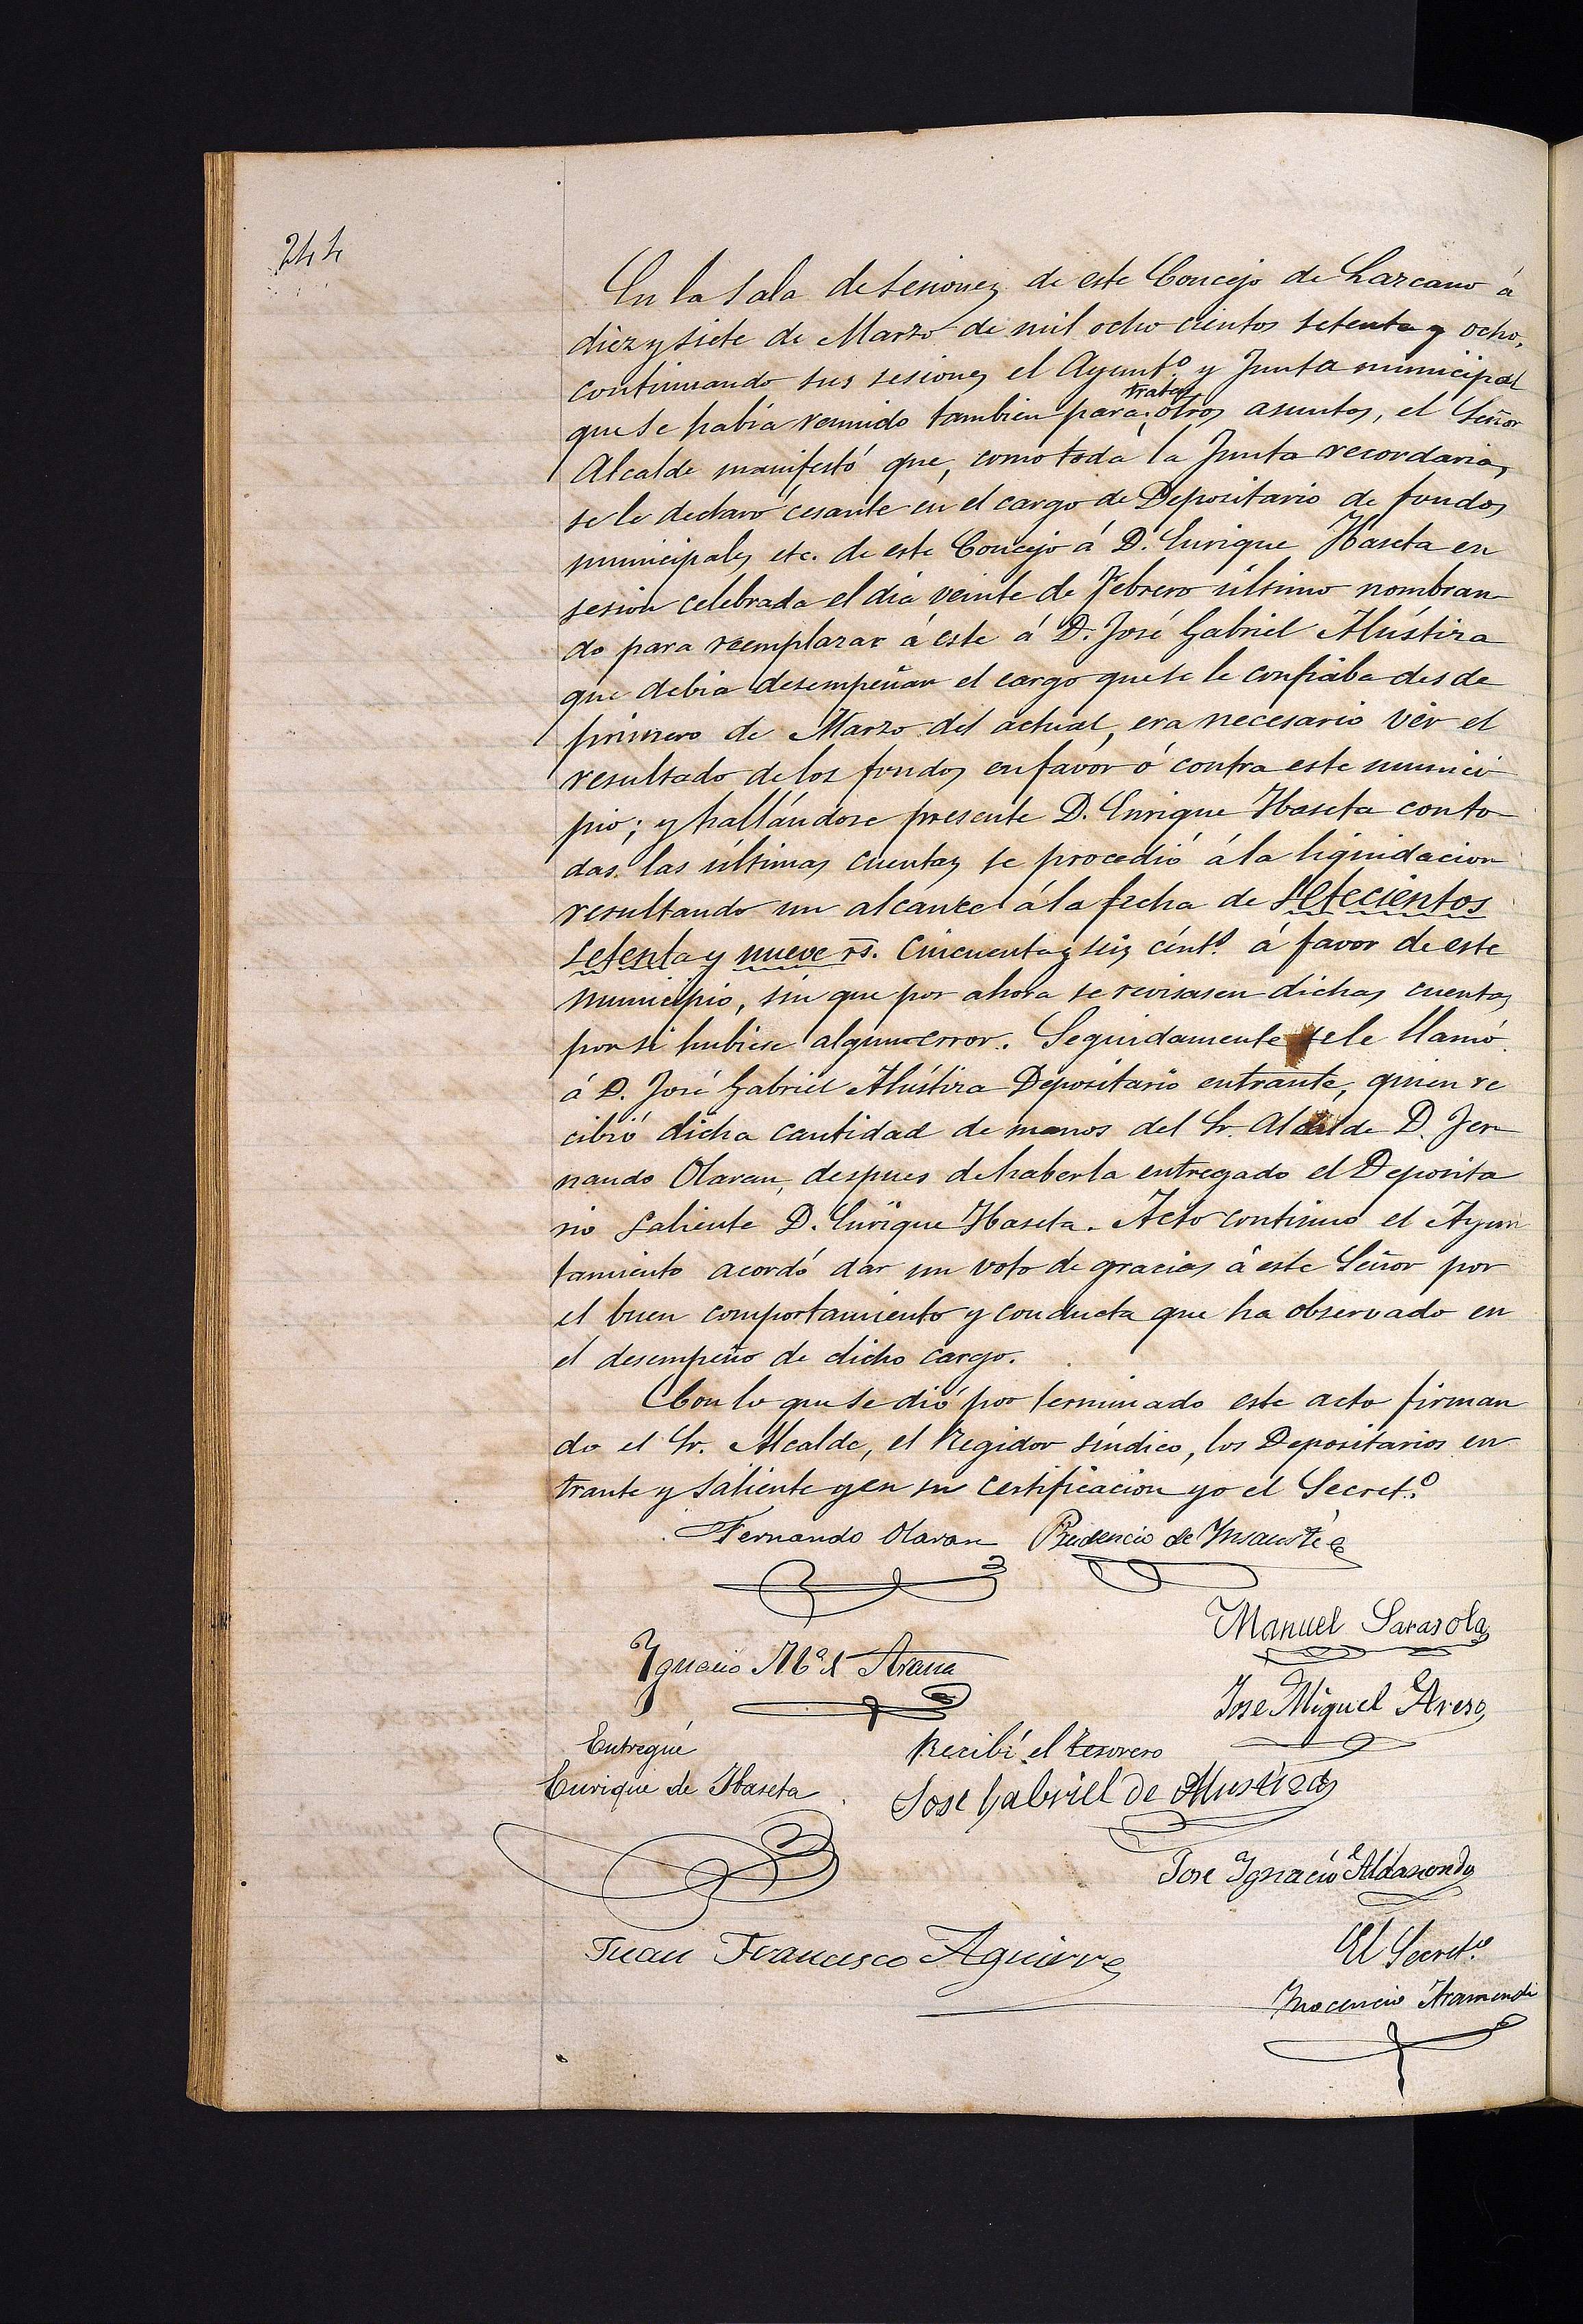 244
En la Sala de sesiones de este Concejo de Lazcano á
diez y siete de Marzo de mil ocho cientos setenta y ocho,
continuando sus sesiones el Ayunt.º y Junta municipal
que se habia reunido tambien para tratar otros asuntos, el Señor
Alcalde manifestó que, como toda la Junta recordaria,
se le declaró cesante en el cargo de Depositario de fondos
municipales etc. de este Concejo á D. Enrique Ibaseta en
sesion celebrada el dia veinte de Febrero último nombran
do para reemplazar á este á D. José Gabriel Alústiza
que debia desempeñar el cargo que se le confiaba desde
primero de Marzo del actual, era necesario ver el
resultado de los fondos en favor ó contra este munici
pio; y hallándose presente D. Enrique Ibaseta con to
das las últimas cuentas se procedió á la liquidacion
resultando un alcance á la fecha de setecientos
setenta y nueve rs. cincuenta y seis cént.s á favor de este
municipio, sin que por ahora se revisasen dichas cuentas
por si hubiese algun error. Seguidamente se le llamó
á D. José Gabriel Alústiza Depositario entrante, quien re
cibió dicha cantidad de manos del Sr. Alcalde D. Fer
nando Olaran, despues de haberla entregado el Deposita
rio saliente D. Enrique Ibaseta. Acto continuo el Ayun
tamiento acordó dar un voto de gracias á este Señor por
el buen comportamiento y conducta que ha observado en
el desempeño de dicho cargo.
Con lo que se dió por terminado este acto firman
do el Sr. Alcalde, el Regidor síndico, los Depositarios en
trante y saliente y en su certificacion yo el Secret.º
Fernando Olaran Prudencio de Ynsausti
Manuel Sarasola
Ygnacio M.ª d Arana
Jose Miguel Areso
Entregué
Recibí el tesorero
Enrique de Ibaseta
Jose Gabriel de Alustiza
Jose Ygnacio Aldasoro
Juan Francisco Aguirre
El Secret.º
Inocencio Aramendi